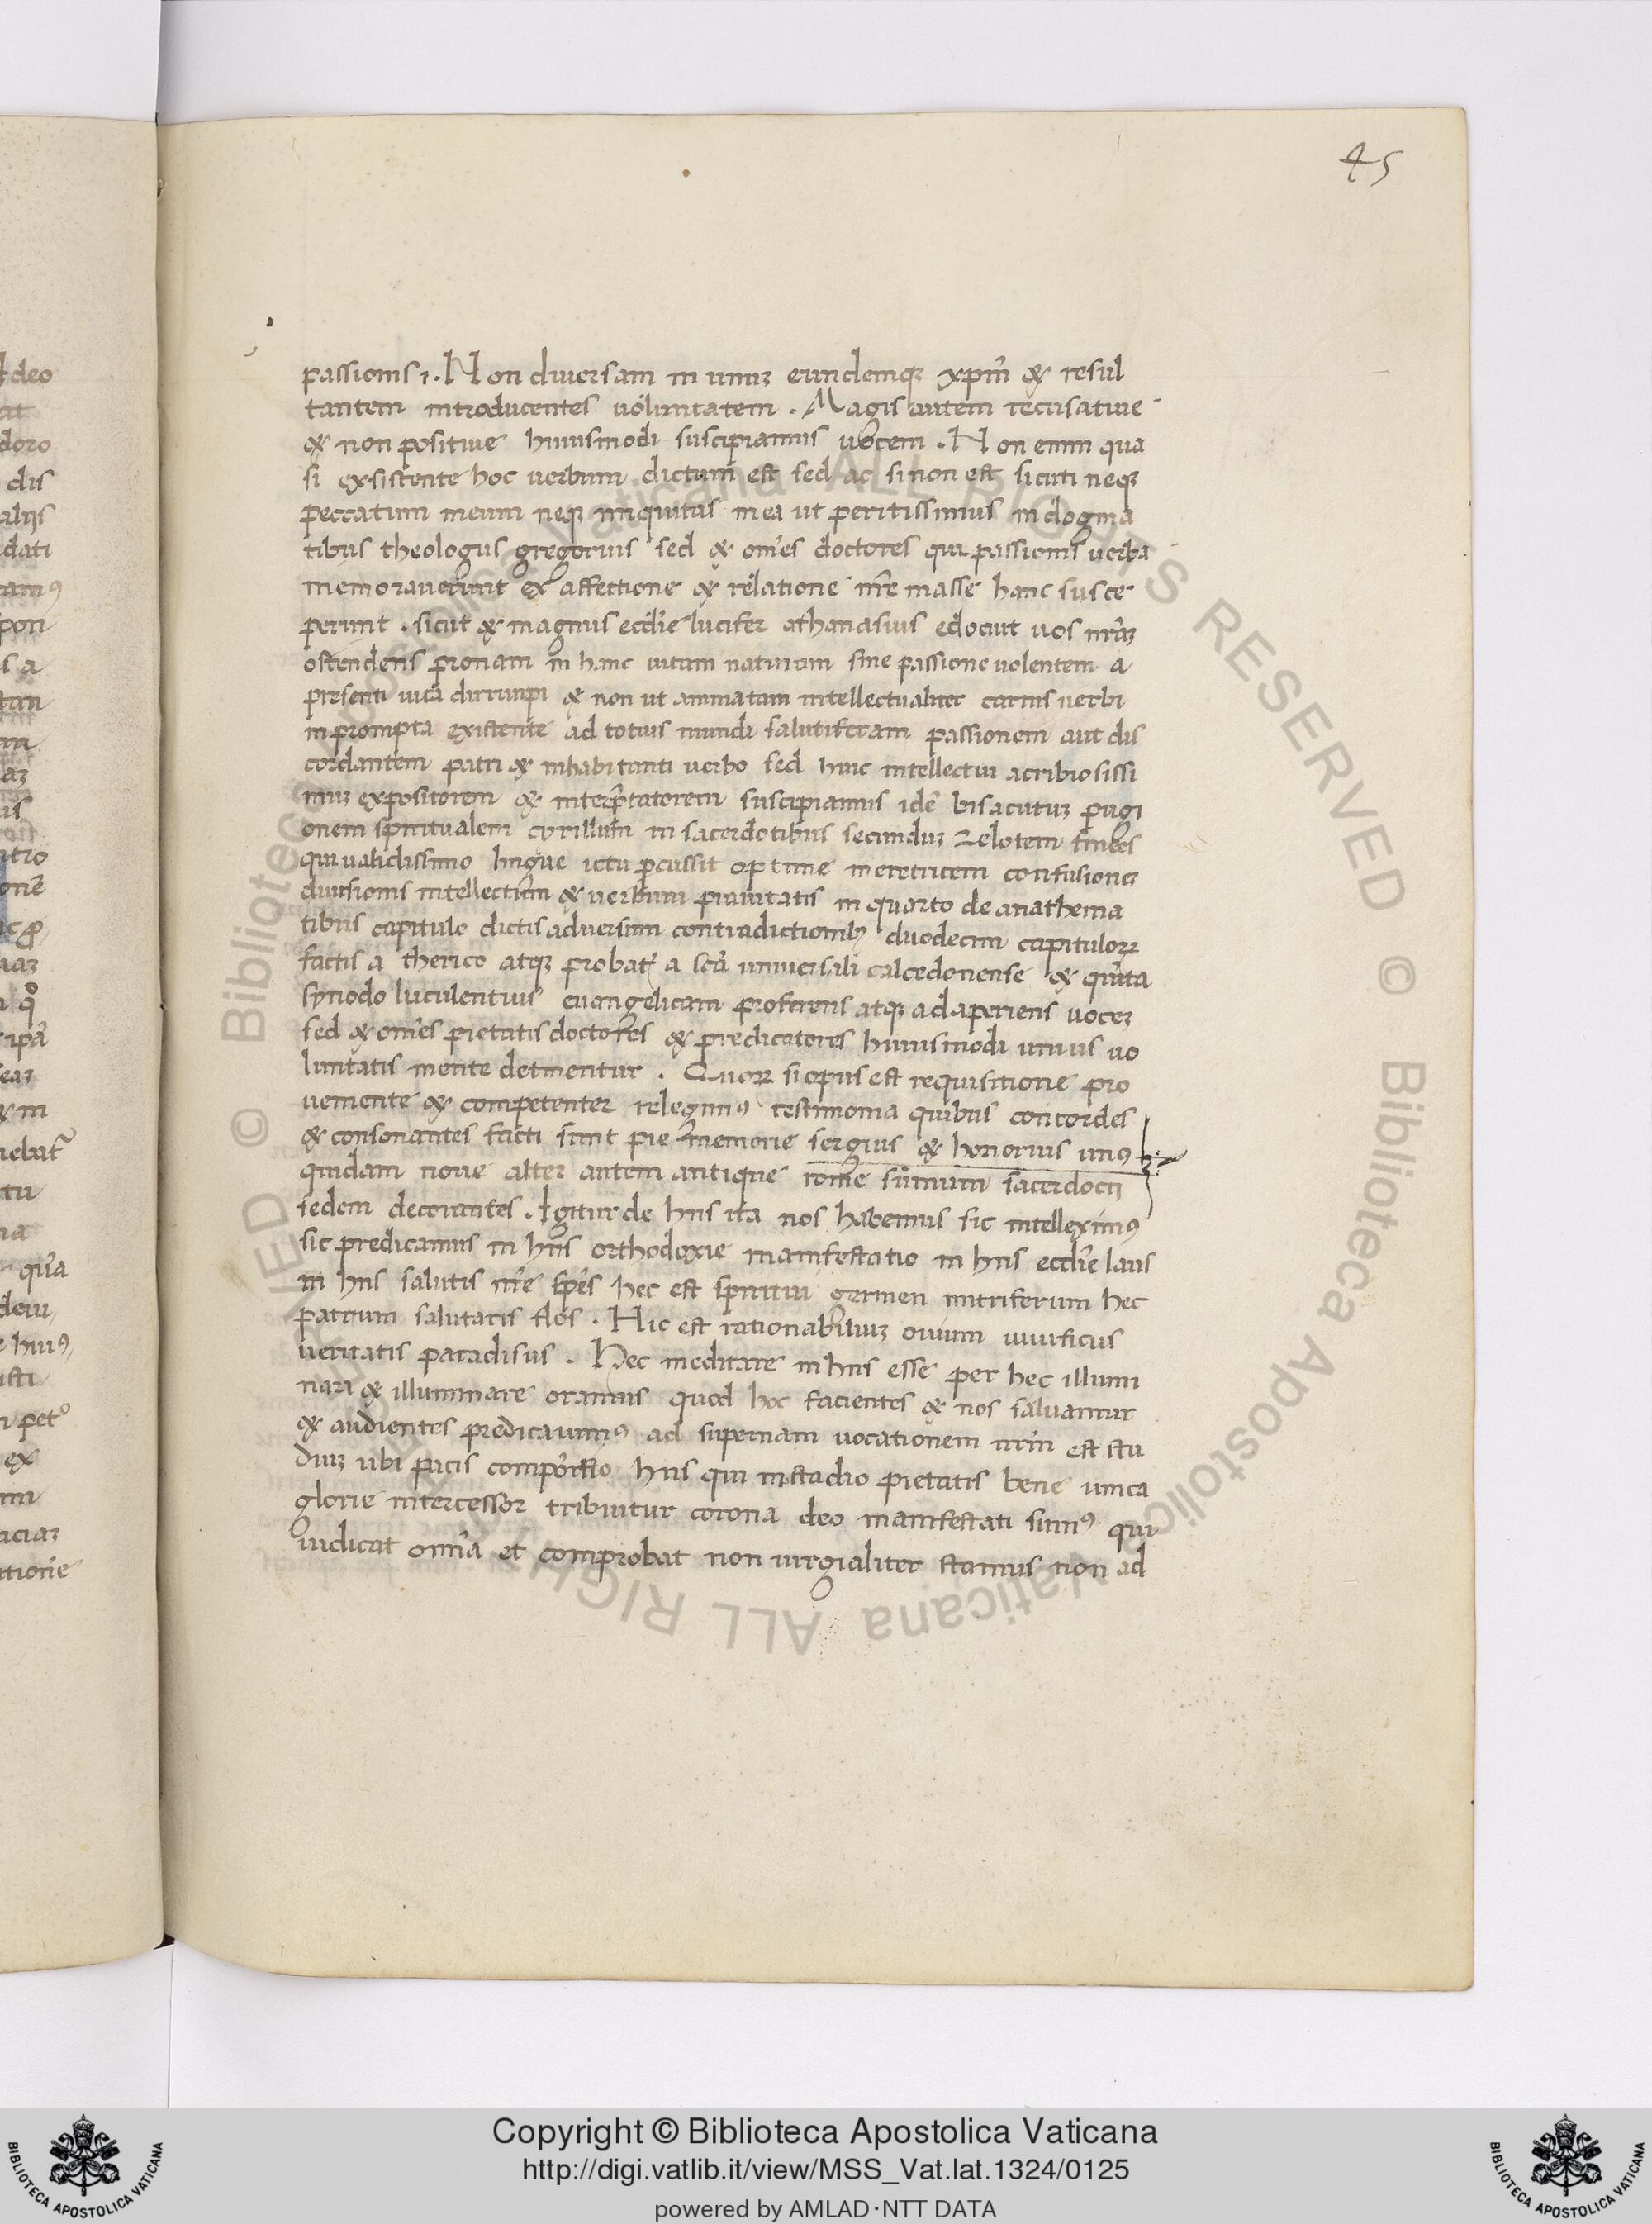 45
passionis ı. Non diuersam in unuȝ eundemqȝ xpm̃ & resul
tantem introducentes uoluntatem. Magis autem recusatiue
& non positiue huiusmodi suscipiamus uocem. Non enim qua
si exsistente hoc uerbum dictum est sed ac si non est sicuti neqȝ
peccatum meum neqȝ iniquitas mea ut peritissimus in dogma
tibus theologus gregorius sed & om̃es doctores qui passionis uerba
memorauerunt ex affectione & relatione nr̃e masse hanc susce
perunt. sicut & magnus eccl̃ie lucifer athanasius edocuit uos nr̃aȝ
ostendens pronam in hanc uitam naturam sine passione uolentem a
presenti uita dirrumpi & non ut animatam intellectualiter carnis uerbi
in prompta existente ad totius mundi salutiferam passionem aut dis
cordantem patri & inhabitanti uerbo sed huic intellectui acribiosissi
muȝ expositorem & interp̃tatorem suscipiamus idẽ bis acutuȝ pugi
onem spiritualem cyrillum in sacerdotibus secunduȝ zelotem finees
qui ualidissimo lingue ictu ꝑcussit optime meretricem confusioneȝ
diuisionis intellectum & uerbum prauitatis in quarto de anathema
tibus capitulo dictis aduersum contradictionibȝ duodecim capituloꝝ
factis a therico atqȝ probat̃ a sc̃a uniuersali calcedonense & qui͂ta
synodo luculentius euangelicam proferens atqȝ adaperiens uoceȝ
sed & om̃es pietatis doctores & predicatores huiusmodi unius uo
luntatis mente detinentur. Quoꝝ si opus est requisitione pro
uemente & competenter relegimꝰ testimonia quibus concordes
& consonantes facti sunt pie memorie sergius & honorius unꝰ
quidam noue alter autem antique rome sum̃um sacerdocii
sedem decorantes. Igitur de hiis ita nos habemus sic intelleximꝰ
sic predicamus in hiis orthodoxie manifestatio in hiis eccl̃ie laus
in hiis salutis nr̃e spẽs hec est spiritui germen nutriferum hec
patrum salutaris flos. Hic est rationabiliuȝ ouium uiuificus
ueritatis paradisus. Hec meditare in hiis esse per hec illumi
nari & illuminare oramus quod hoc facientes & nos saluamur
& audientes predicauimꝰ ad supernam uocationem nr̃m est stu
diuȝ ubi pacis hiis qui in stadio pietatis bene unica
glorie intercessor tribuitur corona deo manifestati sumꝰ qui
iudicat om̃ia et comprobat non uirgialiter stamus non ad
Copyright © Biblioteca Apostolica Vaticana
http://digi.vatlib.it/view/MSS_Vat.lat.1324/0125
powered by AMLAD·NTT DATA